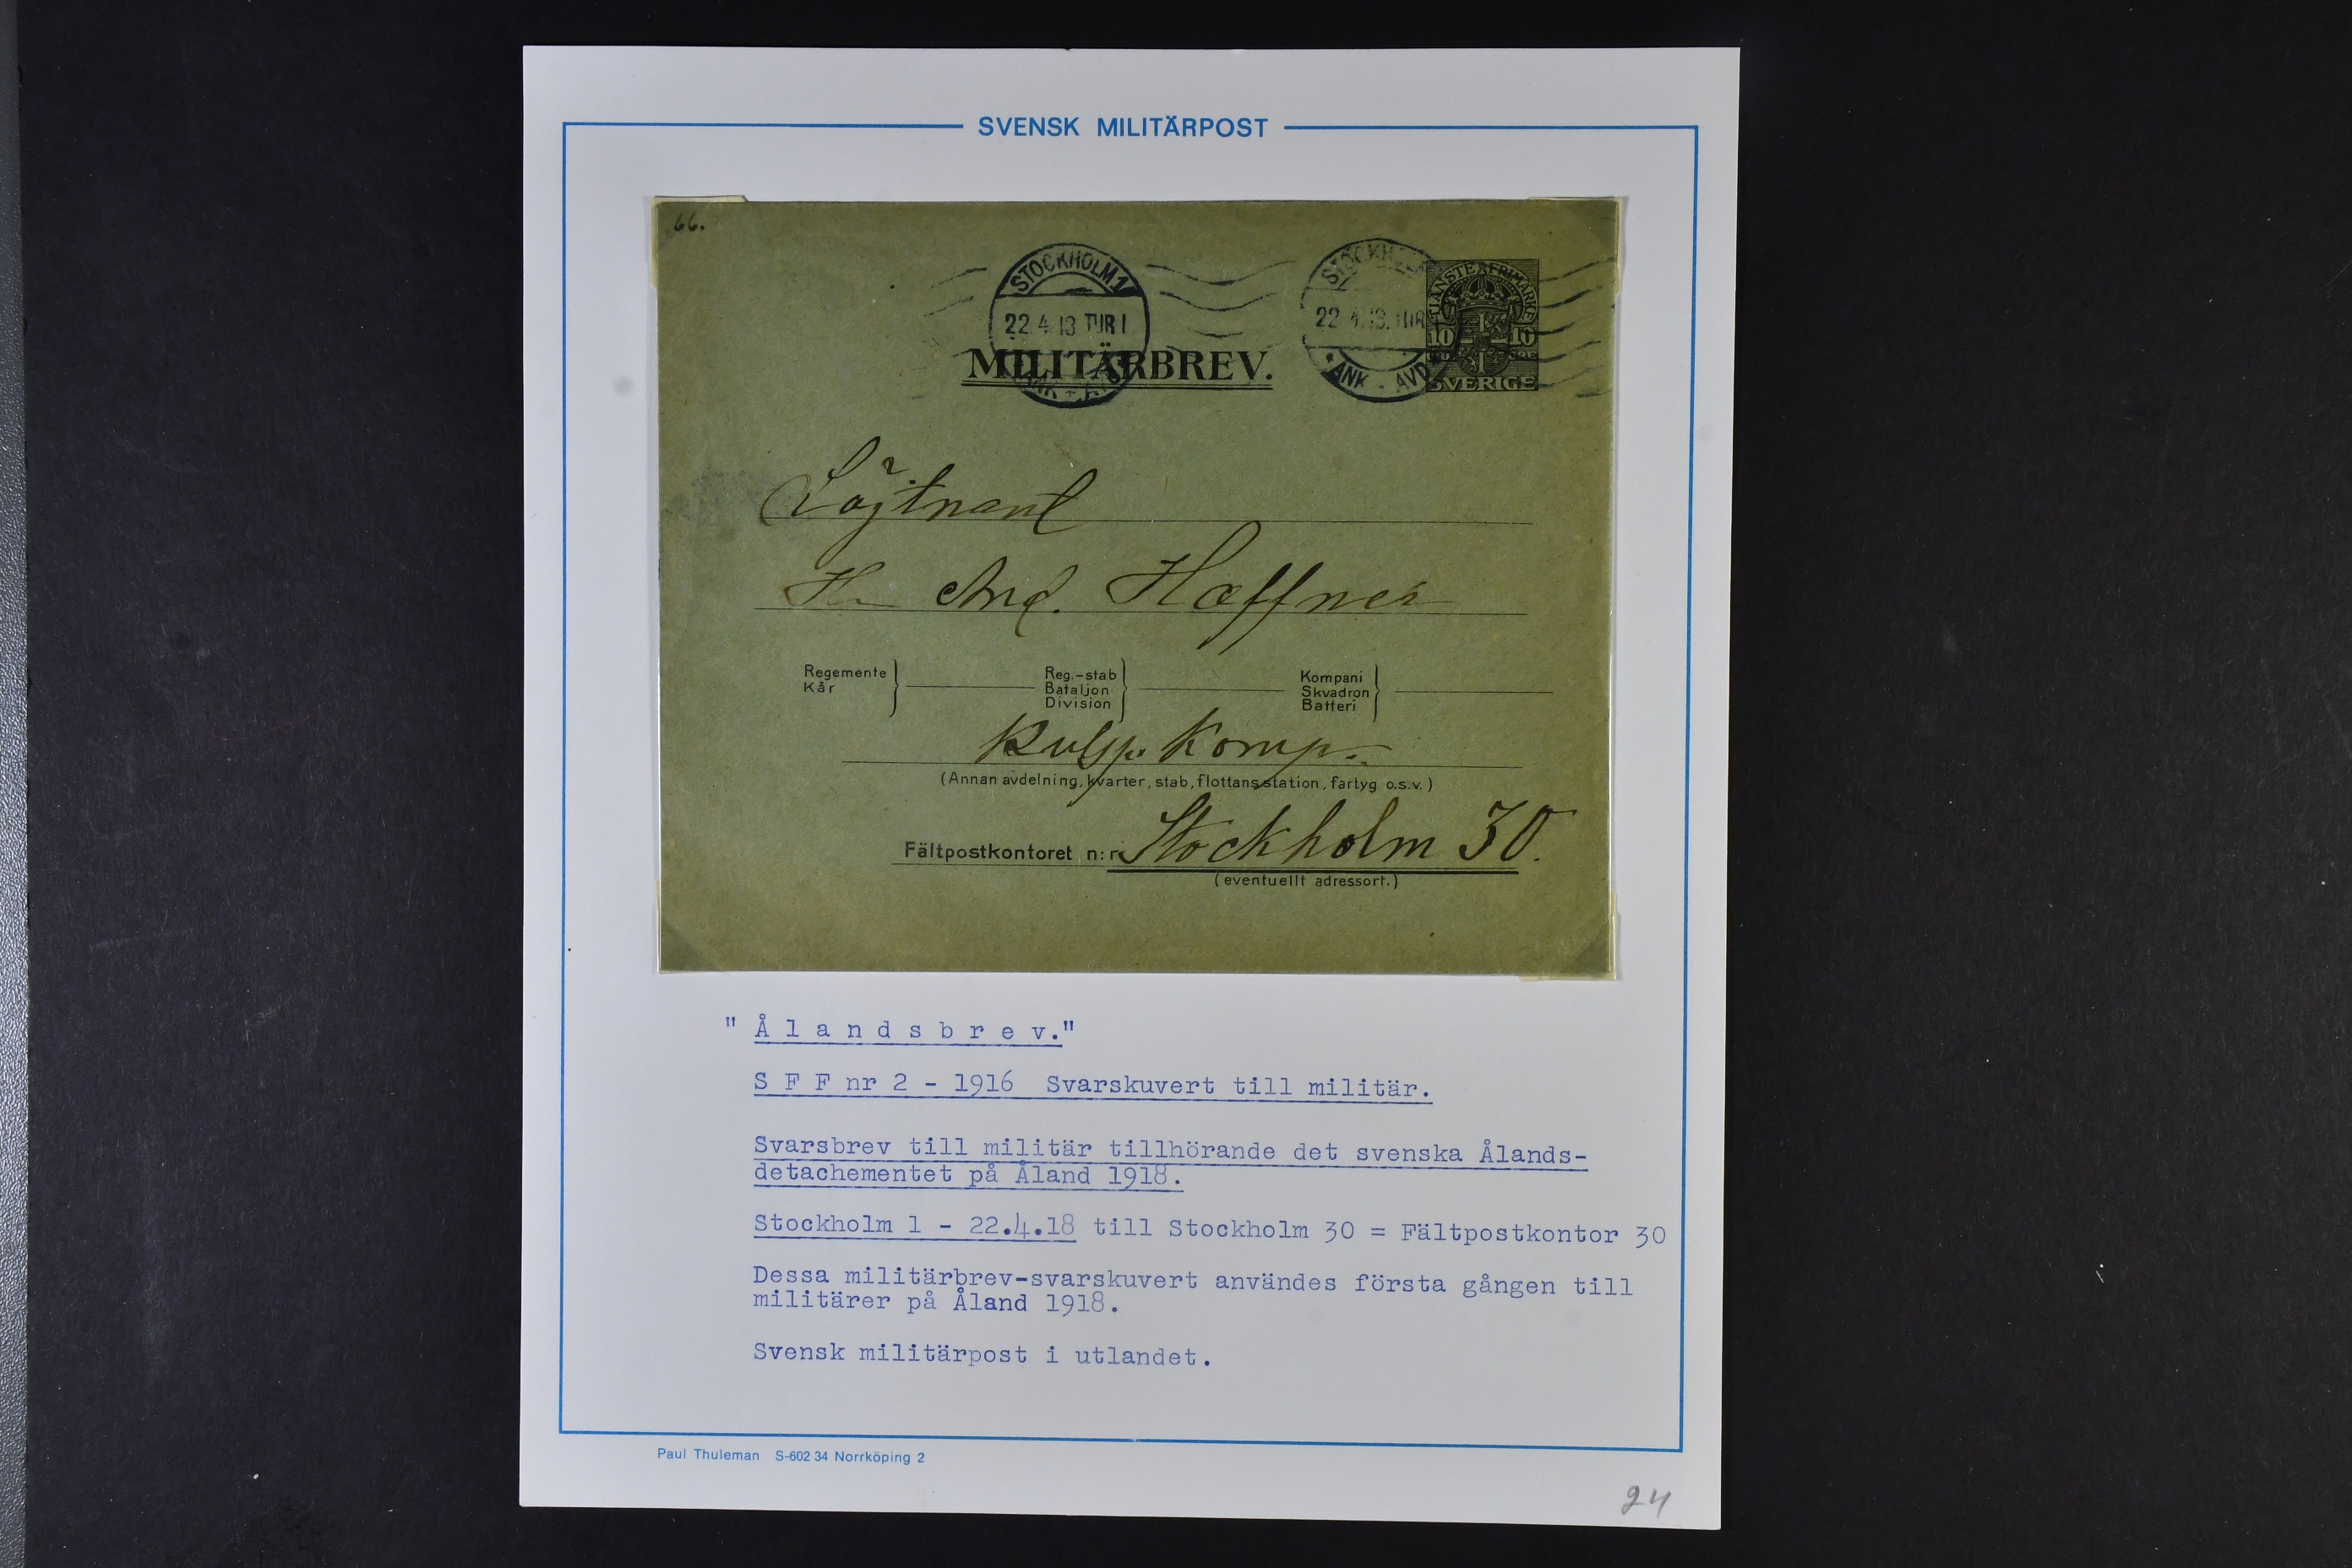 SVENSK MILITÄRPOST
66.
STOCKHOLM 1
22.4.18 TUR 1
ANK + AVD
STOCKHOLM
22.4.18. TUR
ANK - AVD
TJÄNSTEFRIMÄRKE
10 10
ÖRE
SVERIGE
MILITÄRBREV.
Löjtnant
Hr And. Haffner
Regemente
Kår
Reg.-stab
Bataljon
Division
Kompani
Skvadron
Batteri
Komp.
(Annan avdelning, kvarter, stab, flottans station, fartyg o.s.v.)
Fältpostkontoret n:r Stockholm 30.
(eventuellt adressort.)
"Ålandsbrev."
S F F nr 2 - 1916 Svarskuvert till militär.
Svarsbrev till militär tillhörande det svenska Ålands-
detachementet på Åland 1918.
Stockholm 1 - 22.4.18 till Stockholm 30 = Fältpostkontor 30
Dessa militärbrev-svarskuvert användes första gången till
militärer på Åland 1918.
Svensk militärpost i utlandet.
Paul Thuleman S-602 34 Norrköping 2
24